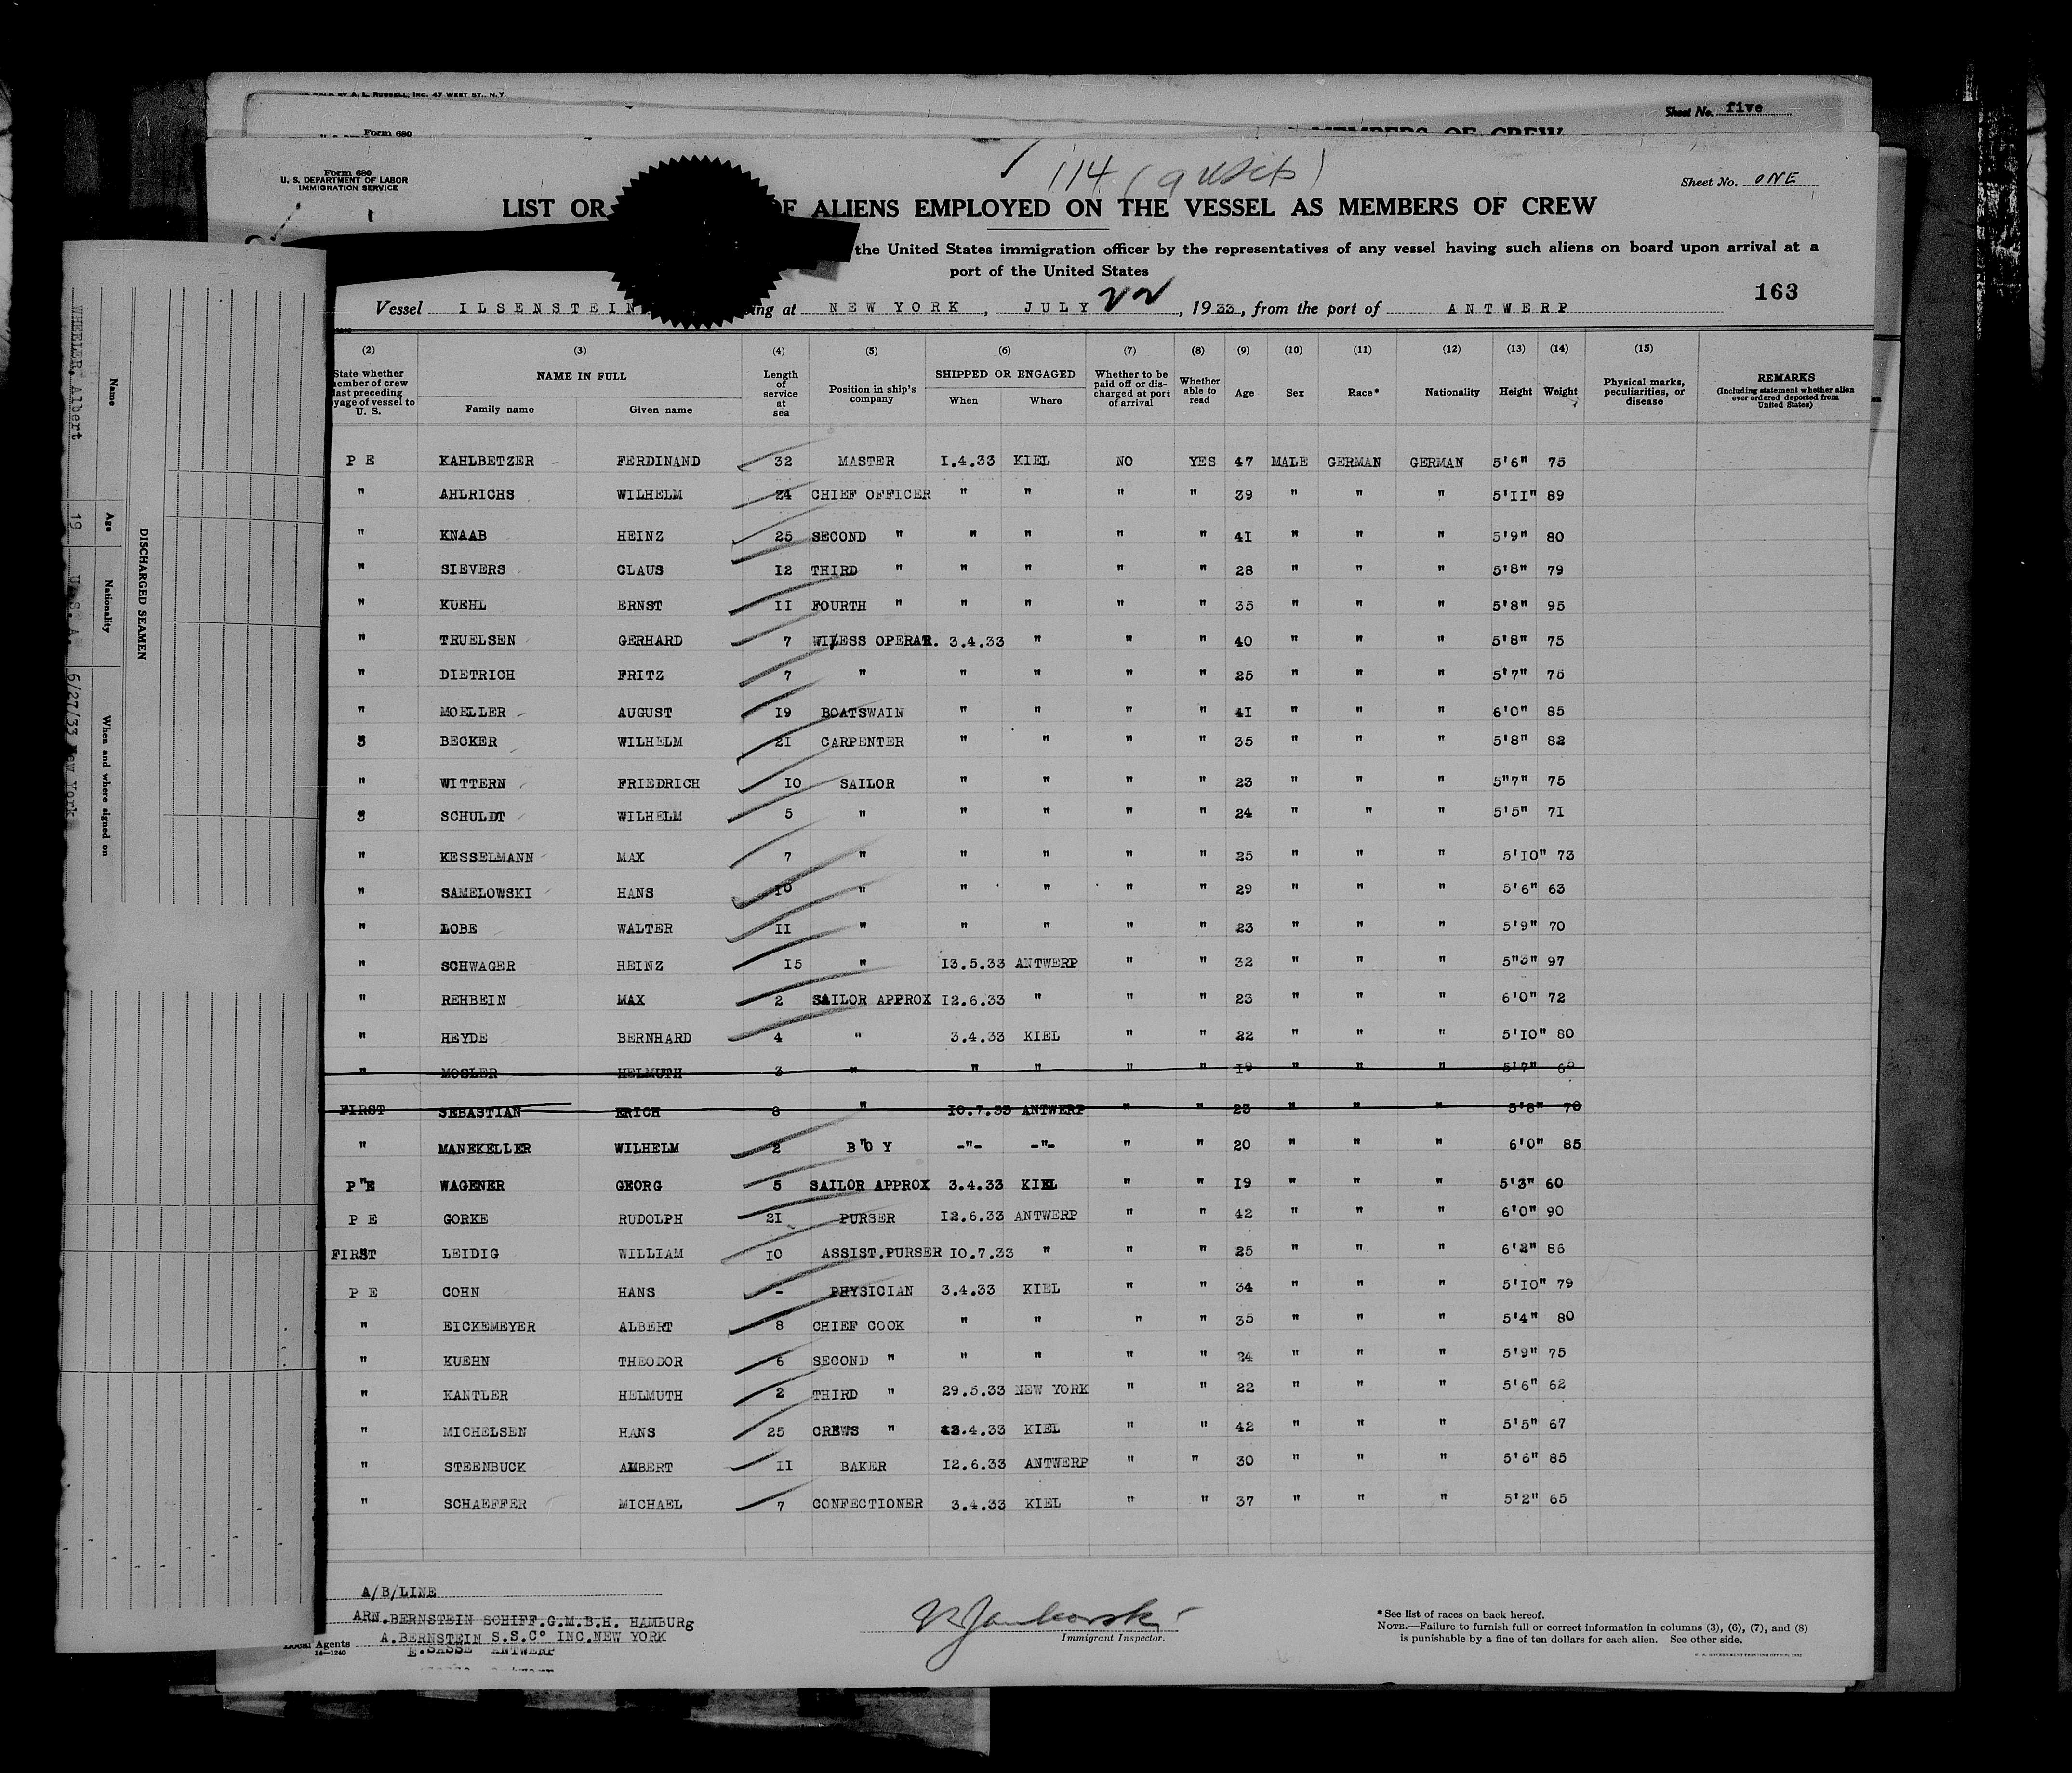 SOLD BY A. L. RUSSELL, INC. 47 WEST ST., N.Y.
Sheet No. five
Form 680
MEMBERS OF CREW
114
Form 680
U. S. DEPARTMENT OF LABOR
IMMIGRATION SERVICE
Sheet No. ONE
LIST OR OF ALIENS EMPLOYED ON THE VESSEL AS MEMBERS OF CREW
the United States immigration officer by the representatives of any vessel having such aliens on board upon arrival at a
port of the United States
163
Vessel ILSENSTEIN ing at NEW YORK, JULY 22, 1933, from the port of ANTWERP
(2) (3) (4) (5) (6) (7) (8) (9) (10) (11) (12) (13) (14) (15)
State whether member of crew last preceding voyage of vessel to U. S. NAME IN FULL Family name Given name Length of service at sea Position in ship's company SHIPPED OR ENGAGED When Where Whether to be paid off or discharged at port of arrival Whether able to read Age Sex Race* Nationality Height Weight Physical marks, peculiarities, or disease REMARKS (Including statement whether alien ever ordered deported from United States)
P E KAHLBETZER FERDINAND 32 MASTER 1.4.33 KIEL NO YES 47 MALE GERMAN GERMAN 5'6" 75
" AHLRICHS WILHELM 24 CHIEF OFFICER " " " " 39 " " " 5'11" 89
" KNAAB HEINZ 25 SECOND " " " " " 41 " " " 5'9" 80
" SIEVERS CLAUS 12 THIRD " " " " " 28 " " " 5'8" 79
" KUEHL ERNST 11 FOURTH " " " " " 35 " " " 5'8" 95
" TRUELSEN GERHARD 7 WI/ESS OPERAR. 3.4.33 " " " 40 " " " 5'8" 75
" DIETRICH FRITZ 7 " " " " " 25 " " " 5'7" 75
" MOELLER AUGUST 19 BOATSWAIN " " " " 41 " " " 6'0" 85
" BECKER WILHELM 21 CARPENTER " " " " 35 " " " 5'8" 82
" WITTERN FRIEDRICH 10 SAILOR " " " " 23 " " " 5"7" 75
" SCHULDT WILHELM 5 " " " " " 24 " " " 5'5" 71
" KESSELMANN MAX 7 " " " " " 25 " " " 5'10" 73
" SAMELOWSKI HANS 10 " " " " " 29 " " " 5'6" 63
" LOBE WALTER 11 " " " " " 23 " " " 5'9" 70
" SCHWAGER HEINZ 15 " 13.5.33 ANTWERP " " 32 " " " 97
" REHBEIN MAX 2 SAILOR APPROX 12.6.33 " " " 23 " " " 6'0" 72
" HEYDE BERNHARD 4 " 3.4.33 KIEL " " 22 " " " 5'10" 80
" MOSLER HELMUTH 3 " " " " " 19 " " " 5'7" 60
FIRST SEBASTIAN ERICH 8 " 10.7.33 ANTWERP " " 23 " " " 5'8" 70
" MANEKELLER WILHELM 2 BOY -"- -"- " " 20 " " " 6'0" 85
P E WAGENER GEORG 5 SAILOR APPROX 3.4.33 KIEL " " 19 " " " 5'3" 60
P E GORKE RUDOLPH 21 PURSER 12.6.33 ANTWERP " " 42 " " " 6'0" 90
FIRST LEIDIG WILLIAM 10 ASSIST.PURSER 10.7.33 " " " 25 " " " 6'2" 86
P E COHN HANS - PHYSICIAN 3.4.33 KIEL " " 34 " " " 5'10" 79
" EICKEMEYER ALBERT 8 CHIEF COOK " " " " 35 " " " 5'4" 80
" KUEHN THEODOR 6 SECOND " " " " " 24 " " " 5'9" 75
" KANTLER HELMUTH 2 THIRD " 29.5.33 NEW YORK " " 22 " " " 5'6" 62
" MICHELSEN HANS 25 CREWS " 3.4.33 KIEL " " 42 " " " 5'5" 67
" STEENBUCK ALBERT 11 BAKER 12.6.33 ANTWERP " " 30 " " " 5'6" 85
" SCHAEFFER MICHAEL 7 CONFECTIONER 3.4.33 KIEL " " 37 " " " 5'2" 65
A/B/LINE
ARN.BERNSTEIN SCHIFF.G.M.B.H. HAMBURG
A.BERNSTEIN S.S.Co INC.NEW YORK
Local Agents E.SASSE ANTWERP
14—1240
Immigrant Inspector.
*See list of races on back hereof.
NOTE.—Failure to furnish full or correct information in columns (3), (6), (7), and (8)
is punishable by a fine of ten dollars for each alien. See other side.
U. S. GOVERNMENT PRINTING OFFICE: 1932
DISCHARGED SEAMEN
Name Age Nationality When and where signed on
WHEELER, Albert 19 U.S.A. 6/27/33 New York